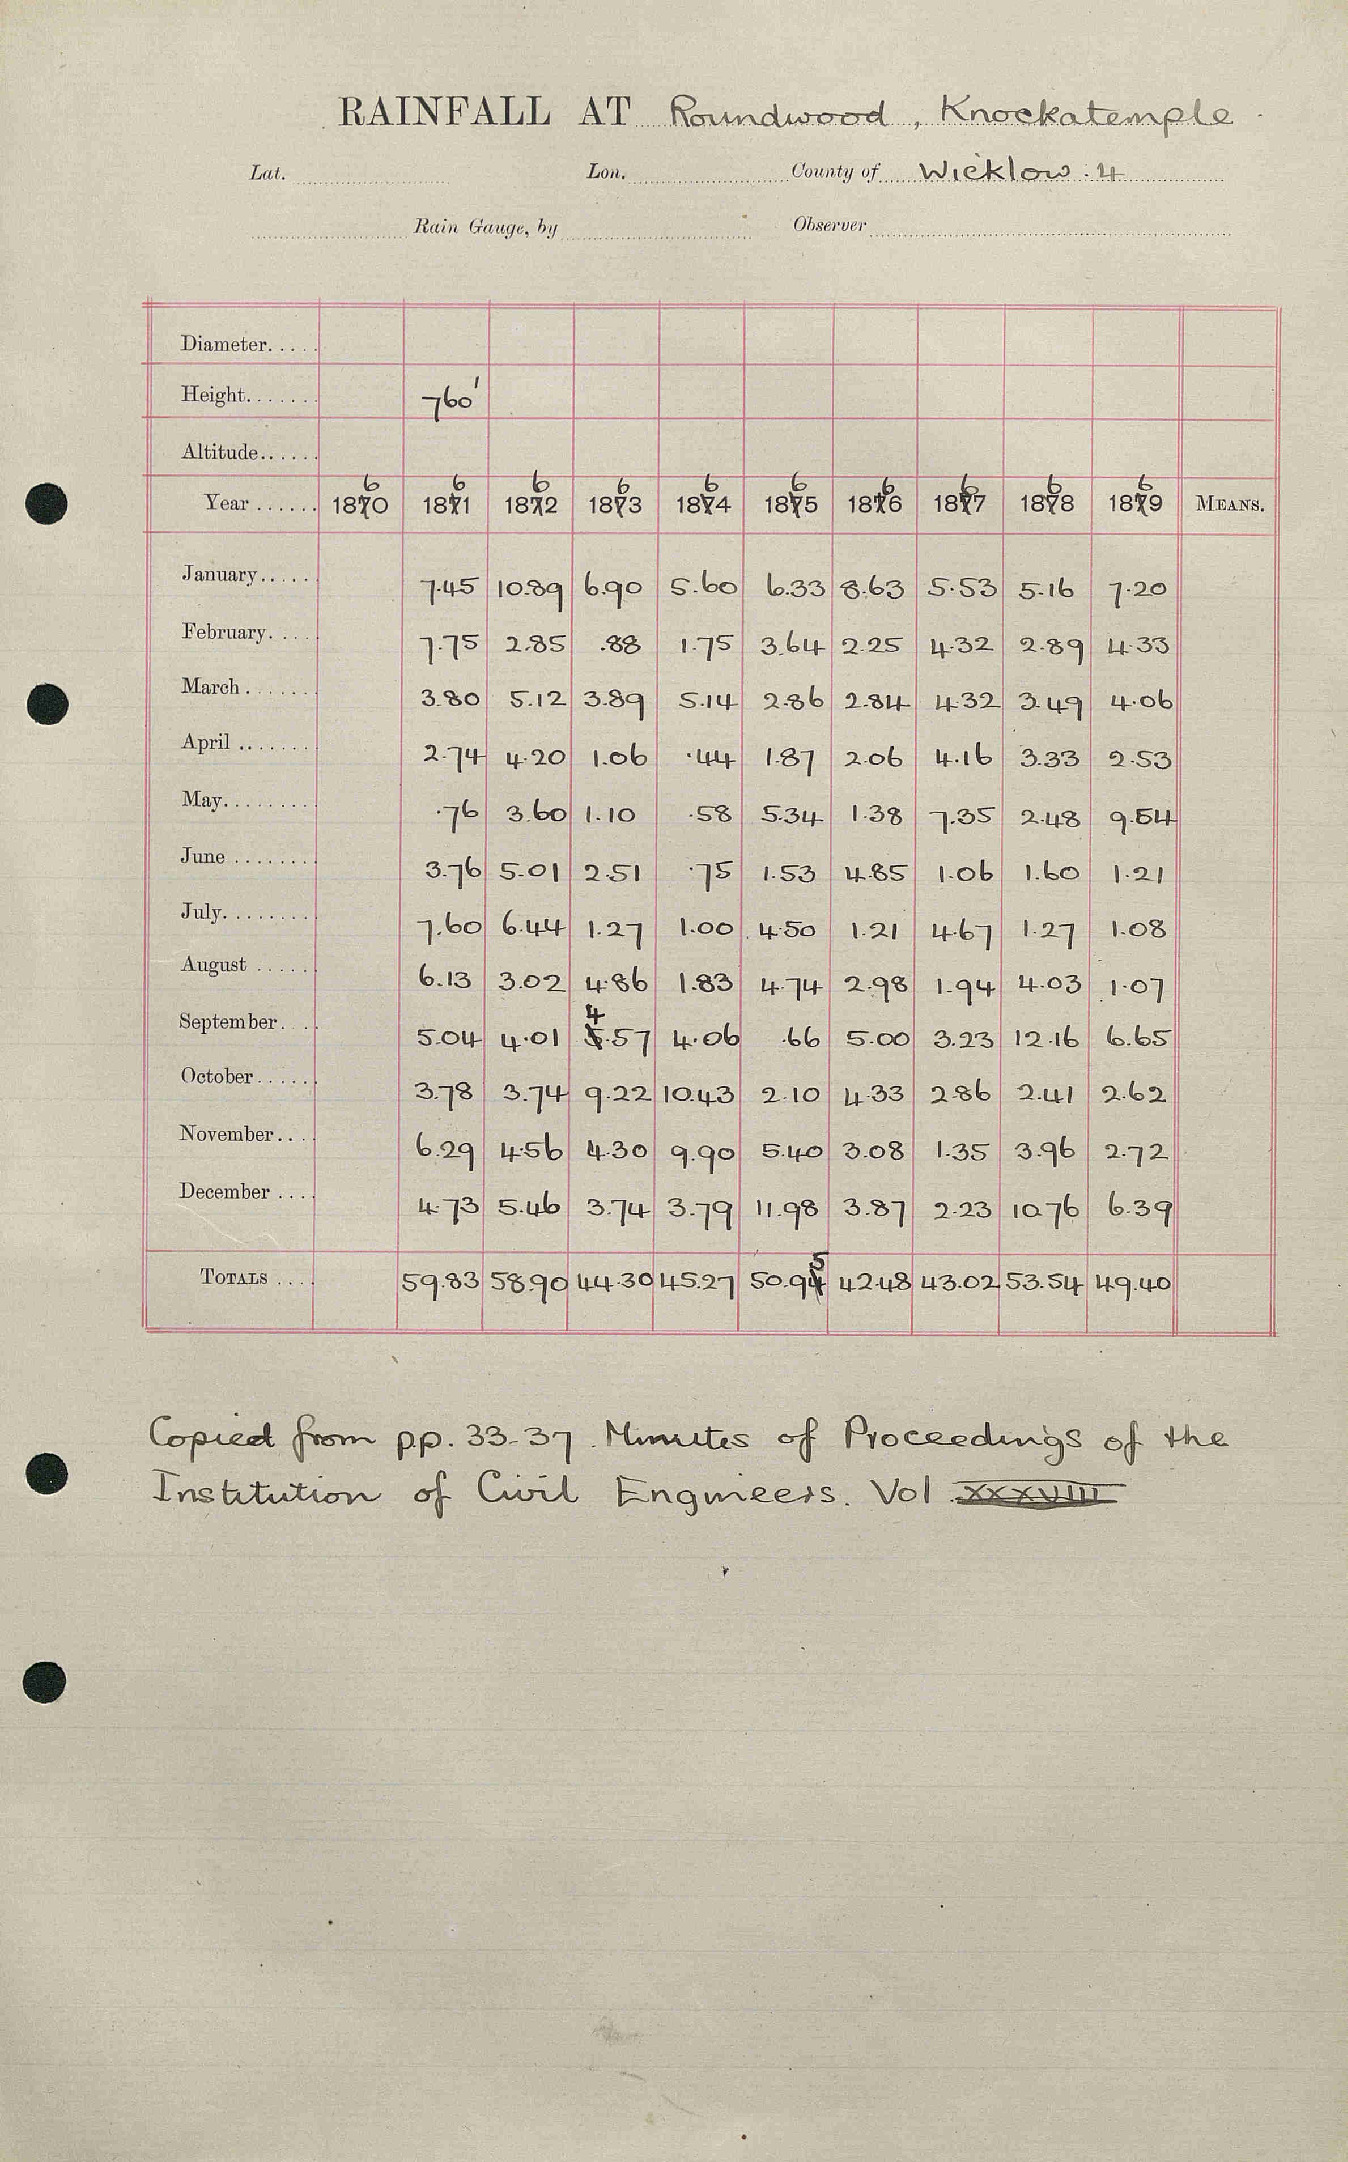 RAINFALL AT Roundwood, Knockatemple
Lat. Lon. County of Wicklow. 4
Rain Gauge, by Observer
Diameter.....
Height....... 760'
Altitude......
Year ...... 1860 1861 1862 1863 1864 1865 1866 1867 1868 1869 MEANS.
January..... 7.45 10.89 6.90 5.60 6.33 8.63 5.53 5.16 7.20
February.... 7.75 2.85 .88 1.75 3.64 2.25 4.32 2.89 4.33
March....... 3.80 5.12 3.89 5.14 2.86 2.84 4.32 3.49 4.06
April ....... 2.74 4.20 1.06 .44 1.87 2.06 4.16 3.33 2.53
May......... .76 3.60 1.10 .58 5.34 1.38 7.35 2.48 9.54
June ........ 3.76 5.01 2.51 .75 1.53 4.85 1.06 1.60 1.21
July......... 7.60 6.44 1.27 1.00 4.50 1.21 4.67 1.27 1.08
August ..... 6.13 3.02 4.86 1.83 4.74 2.98 1.94 4.03 1.07
September... 5.04 4.01 4.57 4.06 .66 5.00 3.23 12.16 6.65
October...... 3.78 3.74 9.22 10.43 2.10 4.33 2.86 2.41 2.62
November... 6.29 4.56 4.30 9.90 5.40 3.08 1.35 3.96 2.72
December .... 4.73 5.46 3.74 3.79 11.98 3.87 2.23 10.76 6.39
TOTALS .... 59.83 58.90 44.30 45.27 50.95 42.48 43.02 53.54 49.40
Copied from pp. 33-37 Minutes of Proceedings of the
Institution of Civil Engineers. Vol XXXVIII